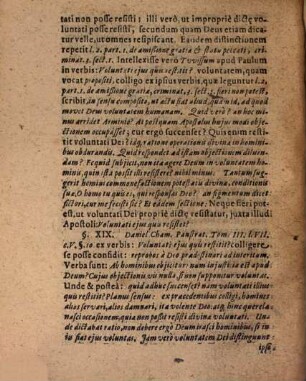 tati non posse resisti; illi verò, ut impropriè dictę vo-
luntati posse resisti, secundum quam Deus etiam dica-
tur velle, ut omnes resipiscant. Eandem distinctionem
repetit l. 2. part. 1. de amissione gratiæ & statu peccati,
minat. 3. sect. 1. Intellexisse verò Tvvissum apud Paulum
in verbis: Voluntati ejus quis restitit? voluntatem, quam
vocat propositi, colligo ex ipsius verbis, quæ leguntur l. 2.
part. 1. de amissione gratiæ, criminat. 4. sect. 2. fieri non potest,
scribit, in sensu composito, ut actu fiat aliud quam id, ad quod
movet Deus voluntatem humanam. Quid verò? an hoc mi-
nus arridet Arminio? At postquam Apostolus hujusmodi objecti-
onem occupasset, cur ergo succenset? Quis enim resti-
tit voluntati Dei? idq; ratione operationis divinæ in homini-
bus obdurandis. Quid respondet ad istam objectionem diluen-
dam? Nequid subjicit, non ita agere Deum in voluntatem ho-
minis, quin istâ possit ei resistere? nihil minus: Tantum sugge-
rit homini commonefactionem potestatis divinæ, & conditionis
suæ, O homo tu quis es, qui responsas Deo? an figmentum dicet
fictori, cur me fecisti sic? Et eâdem sectione. Neque fieri pot-
est, ut voluntati Dei propriè dictę resistatur, juxta illud
Apostoli: Voluntati ejus quis resistet?
§. XIX. Daniel Cham. Panstrat. Tom. III. l. VII.
c. V. §. 10. ex verbis: Voluntati ejus quis restitit? colligere
se posse condidit: reprobos à Deo prædestinari ad interitum.
Verba sunt: Ab hominibus objicitur num injustitia est apud
Deum? Cujus objectionis vis nulla, nisi subsit absoluta voluntas.
Unde & postea: quid adhuc succenset? nam voluntati illius
quis restitit? Planus sensus: ex prædicentibus colligi, homines
alios servari, alios damnari, ita volente Deo: atq; hinc querelæ
nasci occasionem, quia non possit resisti divinæ voluntati. Un-
de dictabat ratio, non debere ergo Deum irasci hominibus, si in-
iusta fiat ejus voluntas. Jam verò voluntatem Dei distinguunt